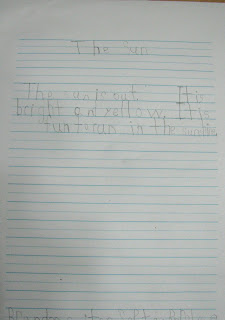 The Sun
The sun is out. It is
bright an yellow. It is
fun to run in the sunshine